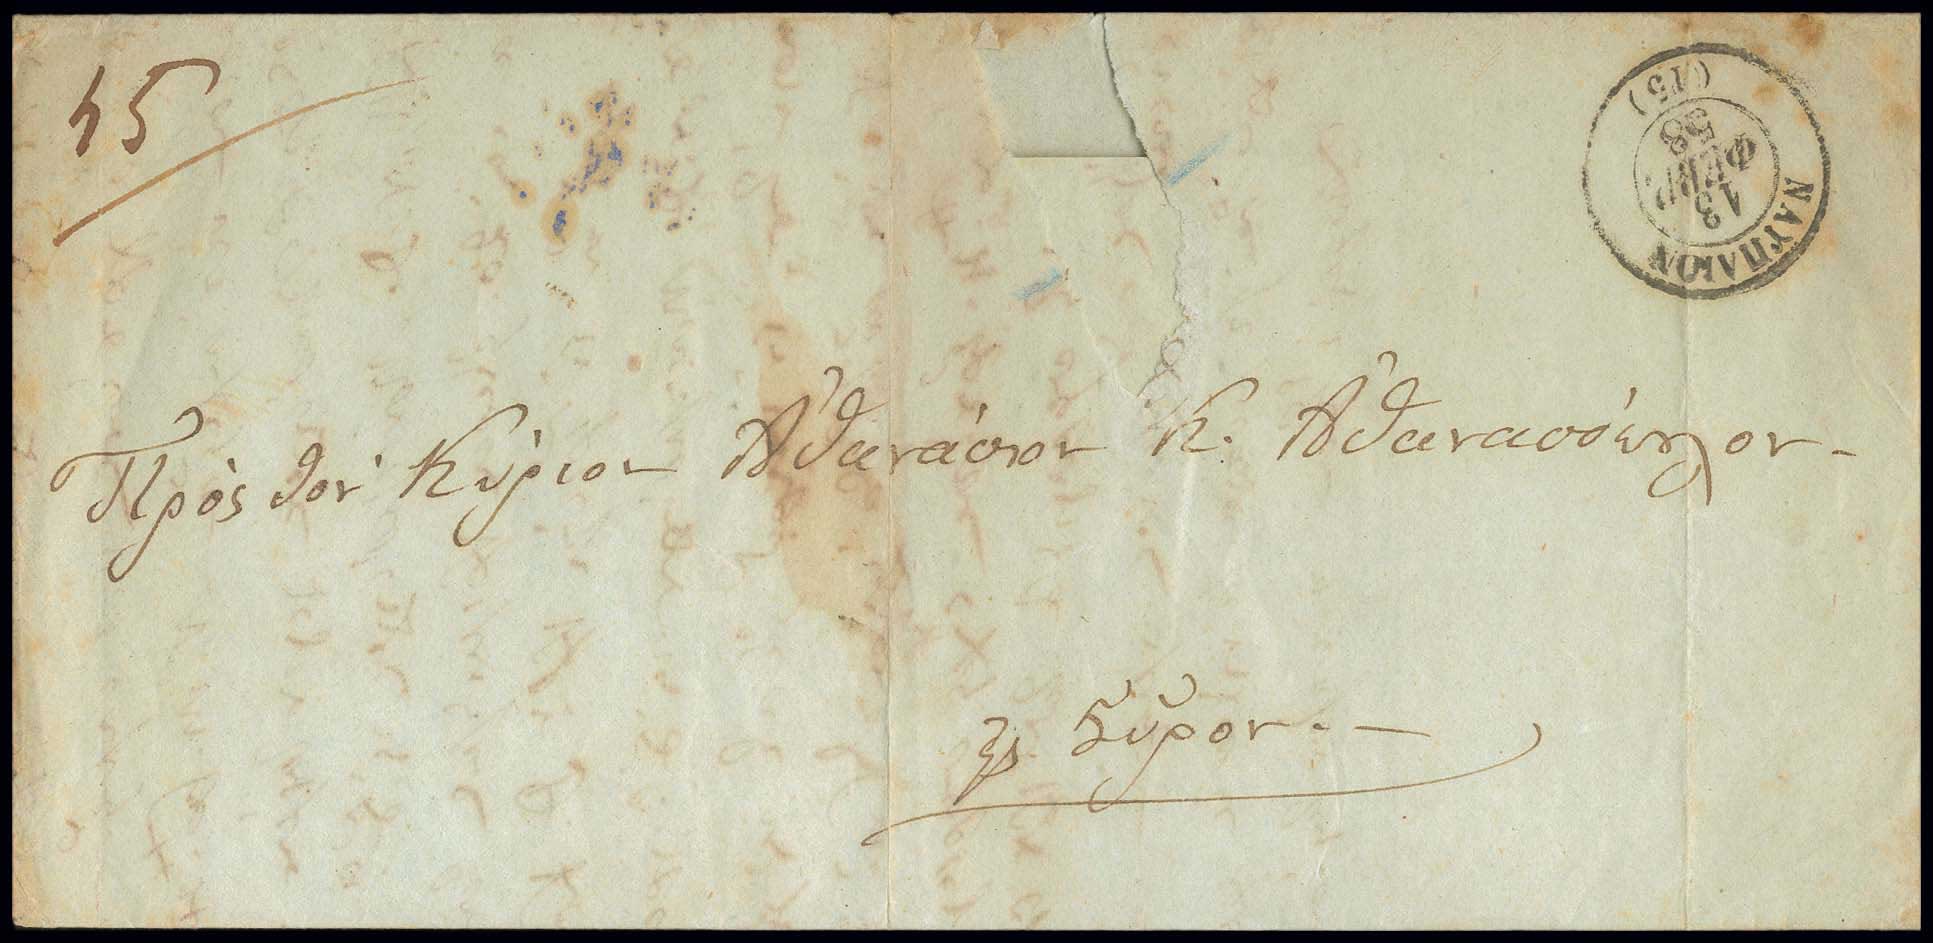 45
ΝΑΥΠΛΙΟΝ
13
ΦΕΒΡ.
58
(15)
Πρὸς τὸν Κύριον Ἀθανάσιον Κ. Ἀθανασόπουλον-
εἰς Σῦρον.-